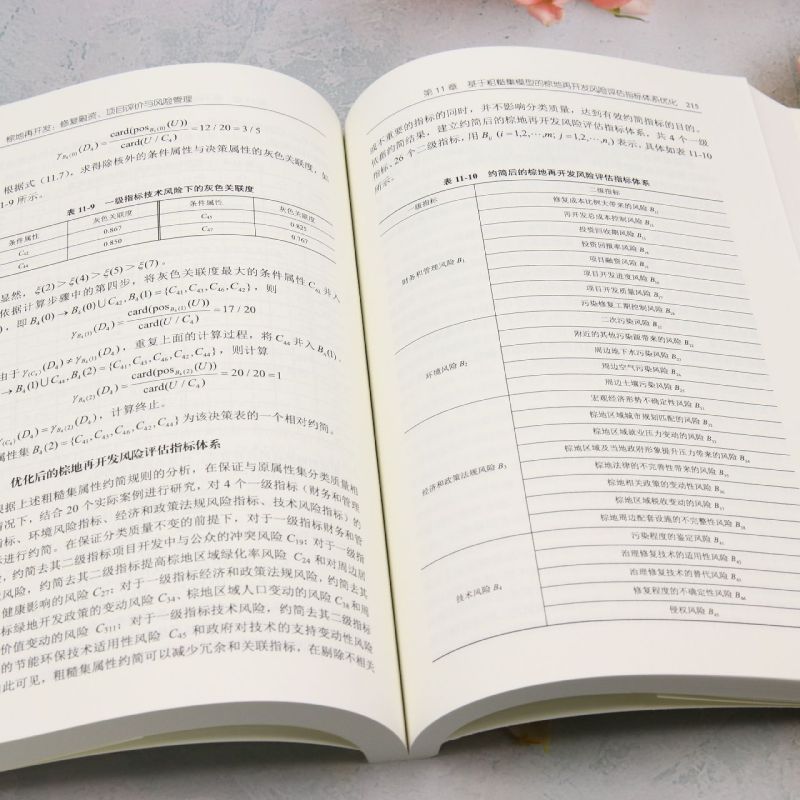 棕地再开发：修复融资、项目评价与风险管理
γ_{B_4(0)}(D_4)=card(pos_{B_4(0)}(U))/card(U/C_4)=12/20=3/5
根据式（11.7），求得除核外的条件属性与决策属性的灰色关联度，如
1-9 所示。
表 11-9 一级指标技术风险下的灰色关联度
条件属性 灰色关联度 条件属性 灰色关联度
C_{42} 0.867 C_{45} 0.825
C_{44} 0.850 C_{47} 0.767
显然，ξ(2)>ξ(4)>ξ(5)>ξ(7)。
依据计算步骤中的第四步，将灰色关联度最大的条件属性 C_{42} 并入
，即 B_4(0)→B_4(0)∪C_{42}, B_4(1)={C_{41},C_{43},C_{46},C_{42}}，则
γ_{B_4(1)}(D_4)=card(pos_{B_4(1)}(U))/card(U/C_4)=17/20
由于 γ_{(C_4)}(D_4)≠γ_{B_4(1)}(D_4)，重复上面的计算过程，将 C_{44} 并入 B_4(1)，
→B_4(1)∪C_{44}, B_4(2)={C_{41},C_{43},C_{46},C_{42},C_{44}}，则计算
γ_{B_4(2)}(D_4)=card(pos_{B_4(2)}(U))/card(U/C_4)=20/20=1
γ_{(C_4)}(D_4)=γ_{B_4(2)}(D_4)，计算终止。
属性集 B_4(2)={C_{41},C_{43},C_{46},C_{42},C_{44}} 为该决策表的一个相对约简。
优化后的棕地再开发风险评估指标体系
根据上述粗糙集属性约简规则的分析，在保证与原属性集分类质量相
情况下，结合 20 个实际案例进行研究，对 4 个一级指标（财务和管理
指标、环境风险指标、经济和政策法规风险指标、技术风险指标）的
进行约简。在保证分类质量不变的前提下，对于一级指标财务和管
，约简去其二级指标项目开发中与公众的冲突风险 C_{19}；对于一级指
风险，约简去其二级指标提高棕地区域绿化率风险 C_{24} 和对周边居
健康影响的风险 C_{27}；对于一级指标经济和政策法规风险，约简去其
标绿地开发政策的变动风险 C_{34}、棕地区域人口变动的风险 C_{38} 和周
价值变动的风险 C_{311}；对于一级指标技术风险，约简去其二级指标
的节能环保技术适用性风险 C_{45} 和政府对技术的支持变动性风险
此可见，粗糙集属性约简可以减少冗余和关联指标，在剔除不相关
第 11 章 基于粗糙集模型的棕地再开发风险评估指标体系优化 215
或不重要的指标的同时，并不影响分类质量，达到有效约简指标的目的。
依据约简结果，建立约简后的棕地再开发风险评估指标体系，共 4 个一级
指标，26 个二级指标，用 B_{ij} (i=1,2,⋯,m; j=1,2,⋯,n_i) 表示，具体如表 11-10
所示。
表 11-10 约简后的棕地再开发风险评估指标体系
一级指标 二级指标
财务和管理风险 B_1
修复成本比例大带来的风险 B_{11}
再开发总成本控制风险 B_{12}
投资回收期风险 B_{13}
投资回报率风险 B_{14}
项目融资风险 B_{15}
项目开发进度风险 B_{16}
项目开发质量风险 B_{17}
污染修复工期控制风险 B_{18}
环境风险 B_2
二次污染风险 B_{21}
附近的其他污染源带来的风险 B_{22}
周边地下水污染风险 B_{23}
周边空气污染风险 B_{24}
周边土壤污染风险 B_{25}
经济和政策法规风险 B_3
宏观经济形势不确定性风险 B_{31}
棕地区域城市规划匹配的风险 B_{32}
棕地区域就业压力变动的风险 B_{33}
棕地区域及当地政府形象提升压力带来的风险 B_{34}
棕地法律的不完善性带来的风险 B_{35}
棕地相关政策的变动性风险 B_{36}
棕地区域税收变动的风险 B_{37}
棕地周边配套设施的不完整性风险 B_{38}
技术风险 B_4
污染程度的鉴定风险 B_{41}
治理修复技术的适用性风险 B_{42}
治理修复技术的替代风险 B_{43}
修复程度的不确定性风险 B_{44}
侵权风险 B_{45}